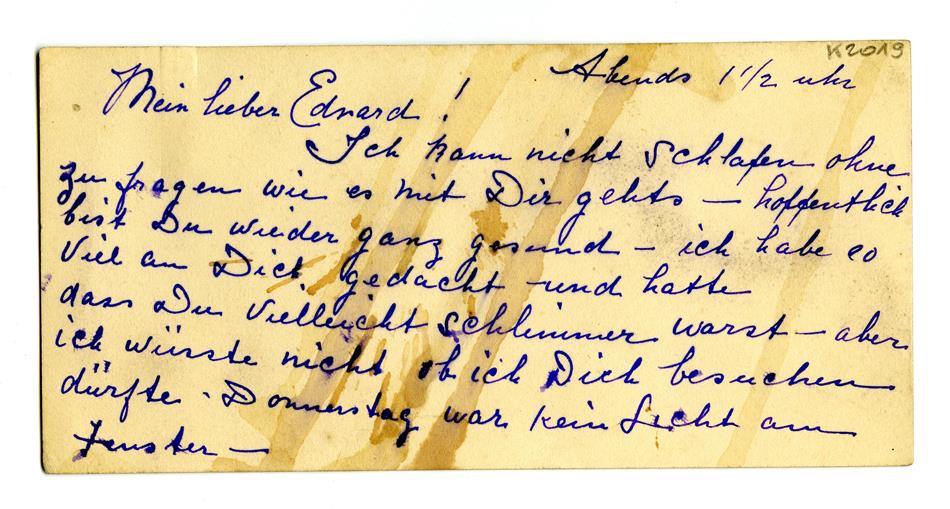 K2019
Abends 1 1/2 uhr
Mein lieber Eduard !
Ich kann nicht schlafen ohne
zu fragen wie es mit Dir gehts – hoffentlich
bist Du wieder ganz gesund – ich habe so
viel an Dich gedacht und hatte
dass Du vielleicht schlimmer warst – aber
ich wüsste nicht ob ich Dich besuchen
dürfte - Donnerstag war kein Licht am
Fenster –